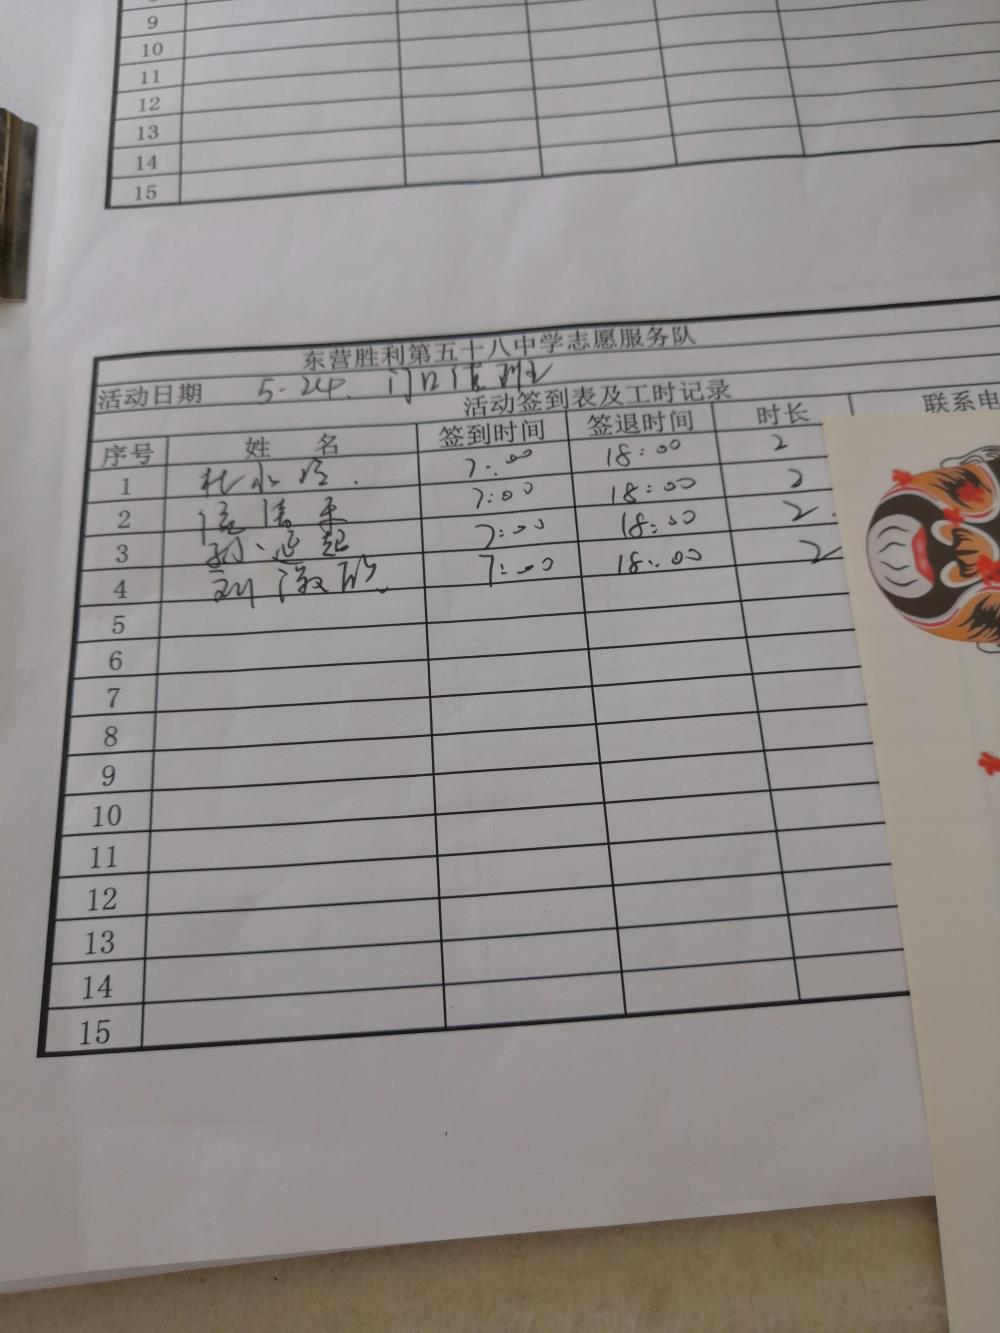 9
10
11
12
13
14
15
东营胜利第五十八中学志愿服务队
活动日期 5-24. 门口值班
活动签到表及工时记录
序号 姓 名 签到时间 签退时间 时长 联系电
1 7:00 18:00 2
2 7:00 18:00 2
3 孙延起 7:00 18:00 2.
4 刘 7:00 18:00 2
5
6
7
8
9
10
11
12
13
14
15